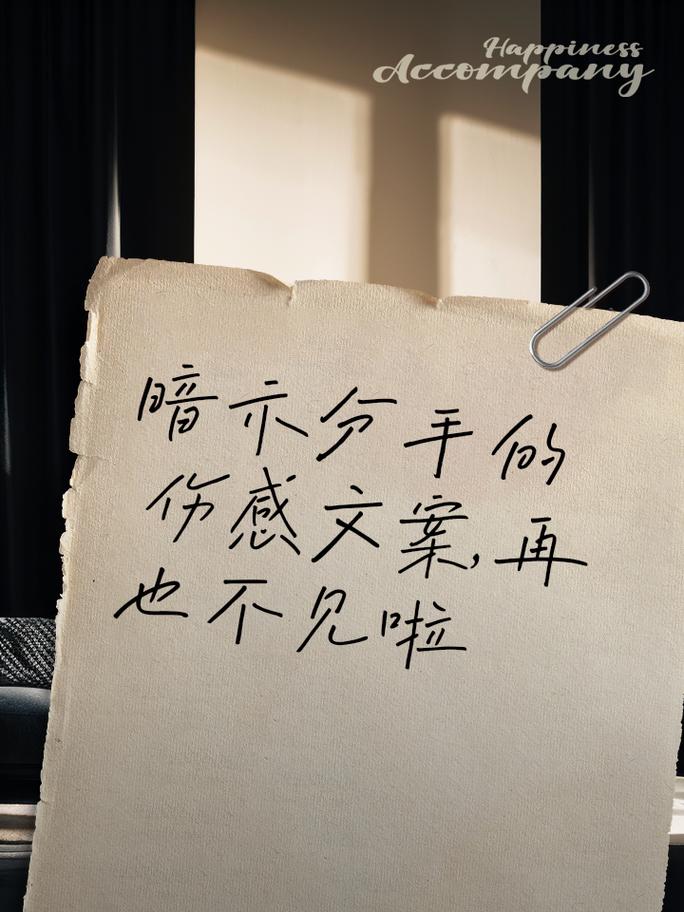 Happiness
Accompany
暗示分手的
伤感文案,再
也不见啦